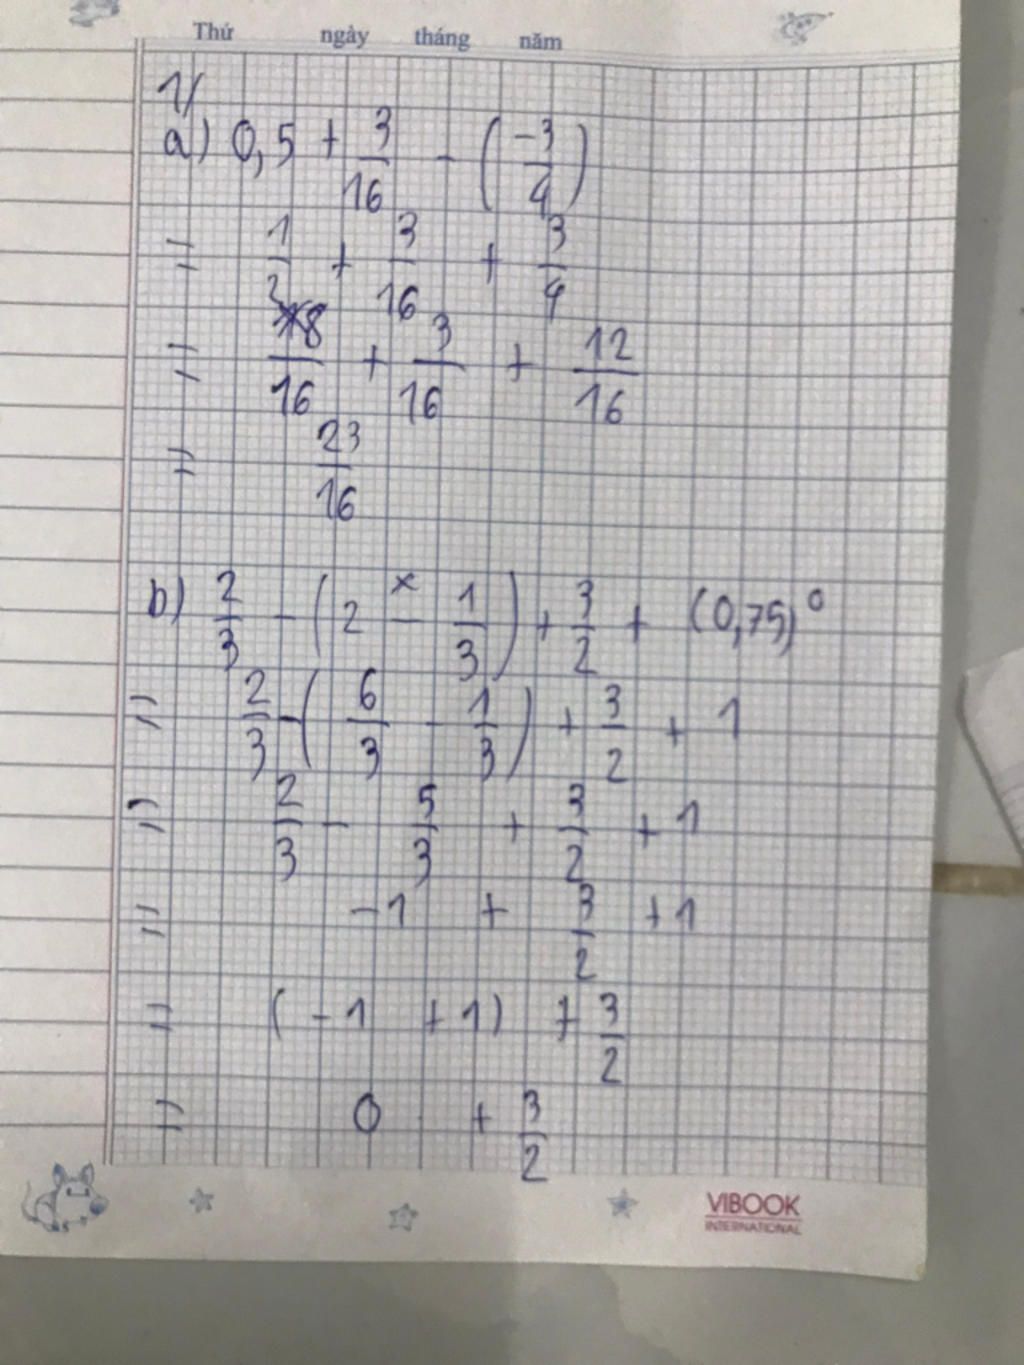 Thứ ngày tháng năm
1/
a) 0,5 + 3/16 - (-3/4)
= 1/2 + 3/16 + 3/4
= 8/16 + 3/16 + 12/16
= 23/16
b) 2/3 - (2 - 1/3) + 3/2 + (0,75)⁰
= 2/3 - (6/3 - 1/3) + 3/2 + 1
= 2/3 - 5/3 + 3/2 + 1
= -1 + 3/2 + 1
= (-1 + 1) + 3/2
= 0 + 3/2
VIBOOK
INTERNATIONAL